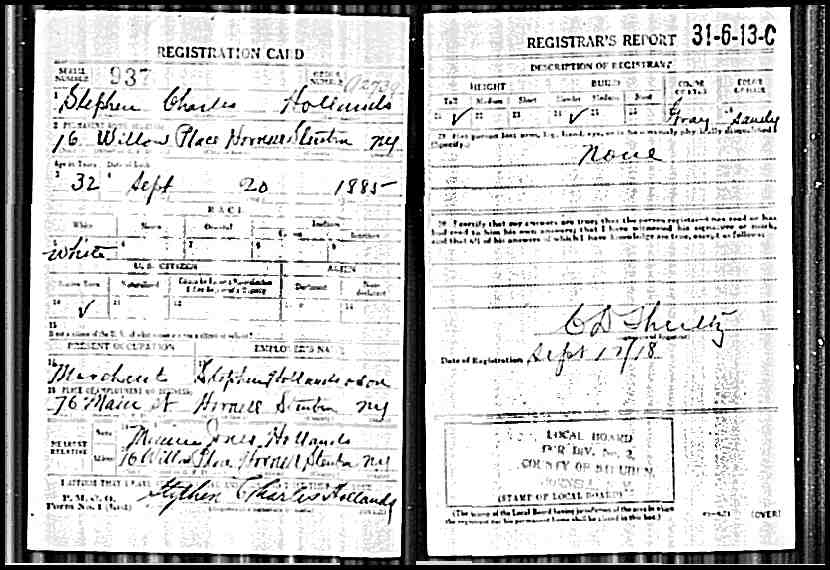 REGISTRATION CARD
SERIAL NUMBER 937
ORDER NUMBER
1 Stephen Charles Hollands
2 PERMANENT HOME ADDRESS
76 Willow Place Hornell Steuben NY
Age in Years Date of birth
3 32 4 Sept 20 1885
RACE
White Negro Oriental Indian
5 White 6 7 8 9
U. S. CITIZEN ALIEN
Native Born Naturalized Declarant Non-declarant
10 ✓ 11 12 13 14
15
PRESENT OCCUPATION EMPLOYER'S NAME
16 Merchant 17 Stephen Hollands & Son
18 PLACE OF EMPLOYMENT OR BUSINESS
76 Main St Hornell Steuben NY
NEAREST RELATIVE
Name Jones Hollands
Address 76 Willow Place Hornell Steuben NY
P. M. G. O.
Form No. 1 (Red)
Stephen Charles Hollands
REGISTRAR'S REPORT 31-6-13-C
DESCRIPTION OF REGISTRANT
HEIGHT BUILD COLOR OF EYES COLOR OF HAIR
Tall Medium Short Slender Medium Stout
21 ✓ 22 23 24 ✓ 25 26 27 Gray 28 Sandy
29 Has person lost arm, leg, hand, eye, or is he obviously physically disqualified?
(Specify.)
None
30 I certify that my answers are true; that the person registered has read or has
had read to him his own answers; that I have witnessed his signature or mark,
and that all of his answers of which I have knowledge are true, except as follows:
Date of Registration Sept 12/18
LOCAL BOARD
FOR DIV. No. 2,
COUNTY OF STEUBEN,
HORNELL, N. Y.
(STAMP OF LOCAL BOARD)
(The stamp of the Local Board having jurisdiction of the area in which
the registrant has his permanent home shall be placed in this box.)
(OVER)